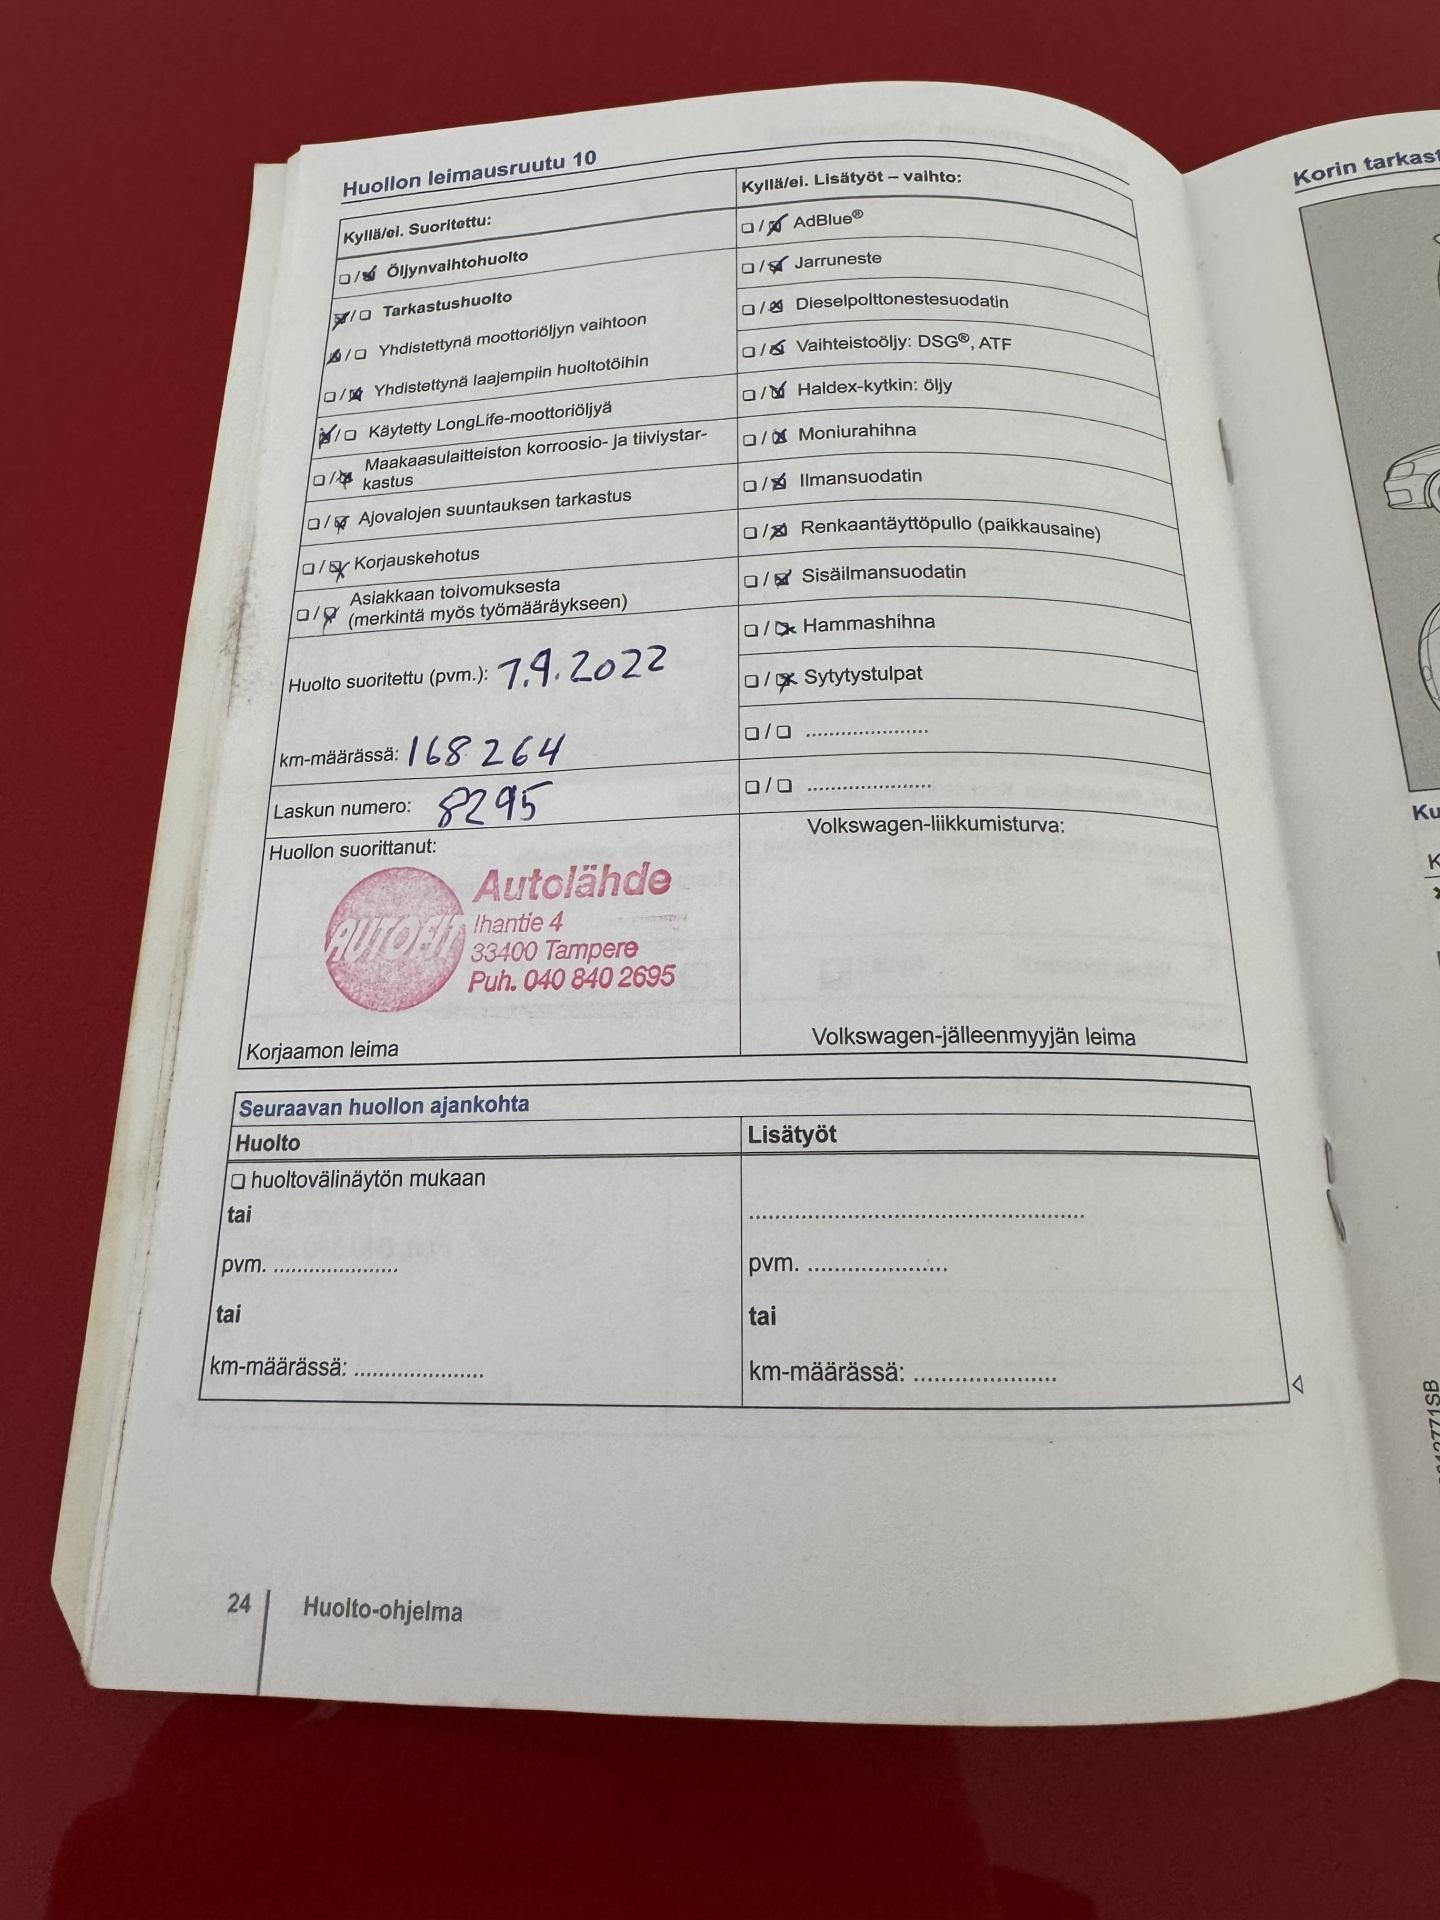 Huollon leimausruutu 10
Kyllä/ei. Suoritettu:
☐/☒ Öljynvaihtohuolto
☒/☐ Tarkastushuolto
☒/☐ Yhdistettynä moottoriöljyn vaihtoon
☐/☒ Yhdistettynä laajempiin huoltotöihin
☒/☐ Käytetty LongLife-moottoriöljyä
☐/☒ Maakaasulaitteiston korroosio- ja tiiviystar-
kastus
☐/☒ Ajovalojen suuntauksen tarkastus
☐/☒ Korjauskehotus
☐/☒ Asiakkaan toivomuksesta
(merkintä myös työmääräykseen)
Huolto suoritettu (pvm.): 7.9.2022
km-määrässä: 168 264
Laskun numero: 8295
Huollon suorittanut:
AUTOFIT
Autolähde
Ihantie 4
33400 Tampere
Puh. 040 840 2695
Korjaamon leima
Kyllä/ei. Lisätyöt – vaihto:
☐/☒ AdBlue®
☐/☒ Jarruneste
☐/☒ Dieselpolttonestesuodatin
☐/☒ Vaihteistoöljy: DSG®, ATF
☐/☒ Haldex-kytkin: öljy
☐/☒ Moniurahihna
☐/☒ Ilmansuodatin
☐/☒ Renkaantäyttöpullo (paikkausaine)
☐/☒ Sisäilmansuodatin
☐/☒ Hammashihna
☐/☒ Sytytystulpat
☐/☐ ......................
☐/☐ ......................
Volkswagen-liikkumisturva:
Volkswagen-jälleenmyyjän leima
Seuraavan huollon ajankohta
Huolto
☐ huoltovälinäytön mukaan
tai
pvm. ......................
tai
km-määrässä: ......................
Lisätyöt
............................................................
pvm. ......................
tai
km-määrässä: ......................
24
Huolto-ohjelma
Korin tarkast
Ku
K